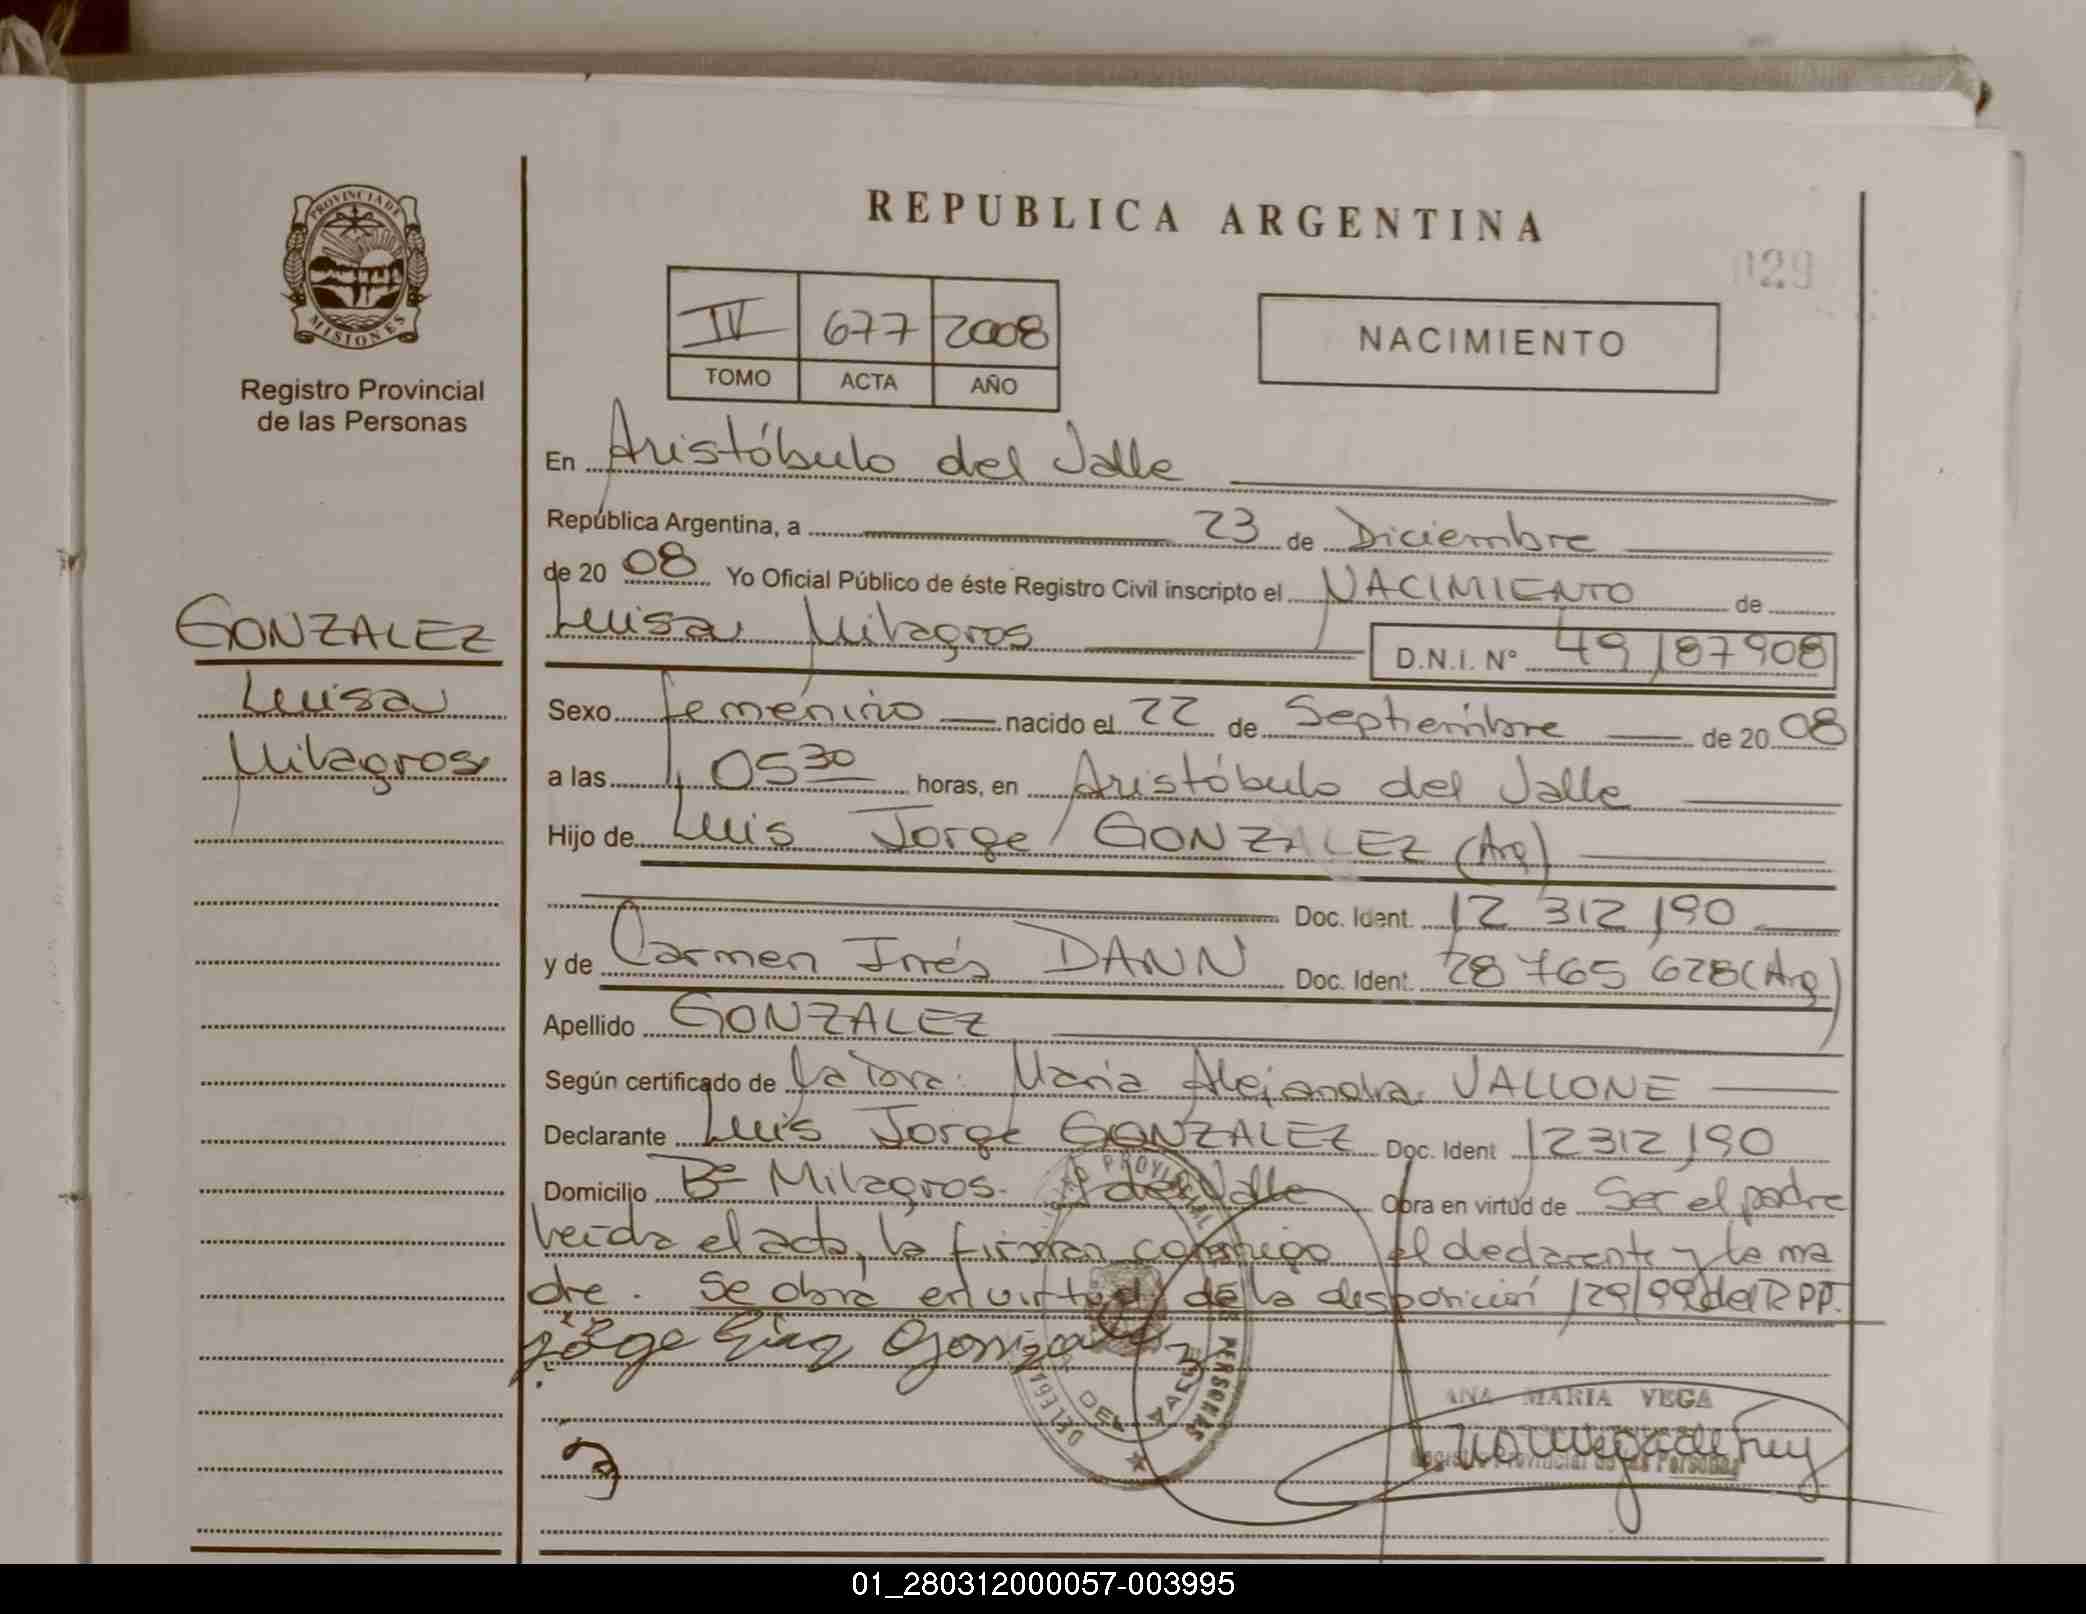 REPUBLICA ARGENTINA
029
PROVINCIA DE
MISIONES
Registro Provincial
de las Personas
IV 677 2008
TOMO ACTA AÑO
NACIMIENTO
En Aristóbulo del Valle
República Argentina, a 23 de Diciembre
de 20 08 Yo Oficial Público de éste Registro Civil inscripto el NACIMIENTO de
Luisa Milagros D.N.I. N° 49 187908
GONZALEZ
Luisa
Milagros
Sexo femenino nacido el 22 de Septiembre de 20 08
a las 05 30 horas, en Aristóbulo del Valle
Hijo de Luis Jorge GONZALEZ (Arg)
Doc. Ident. 12 312 190
y de Carmen Inés DANN Doc. Ident. 28 765 628 (Arg)
Apellido GONZALEZ
Según certificado de La Dra. Maria Alejandra VALLONE
Declarante Luis Jorge GONZALEZ Doc. Ident 12312190
Domicilio Bº Milagros. A del Valle Obra en virtud de Ser el padre
Leída el acta, la firman conmigo el declarante y la ma
dre. Se obra en virtud de la disposición 129/99 del RPP.
ANA MARIA VEGA
Registro Provincial de las Personas
01_280312000057-003995